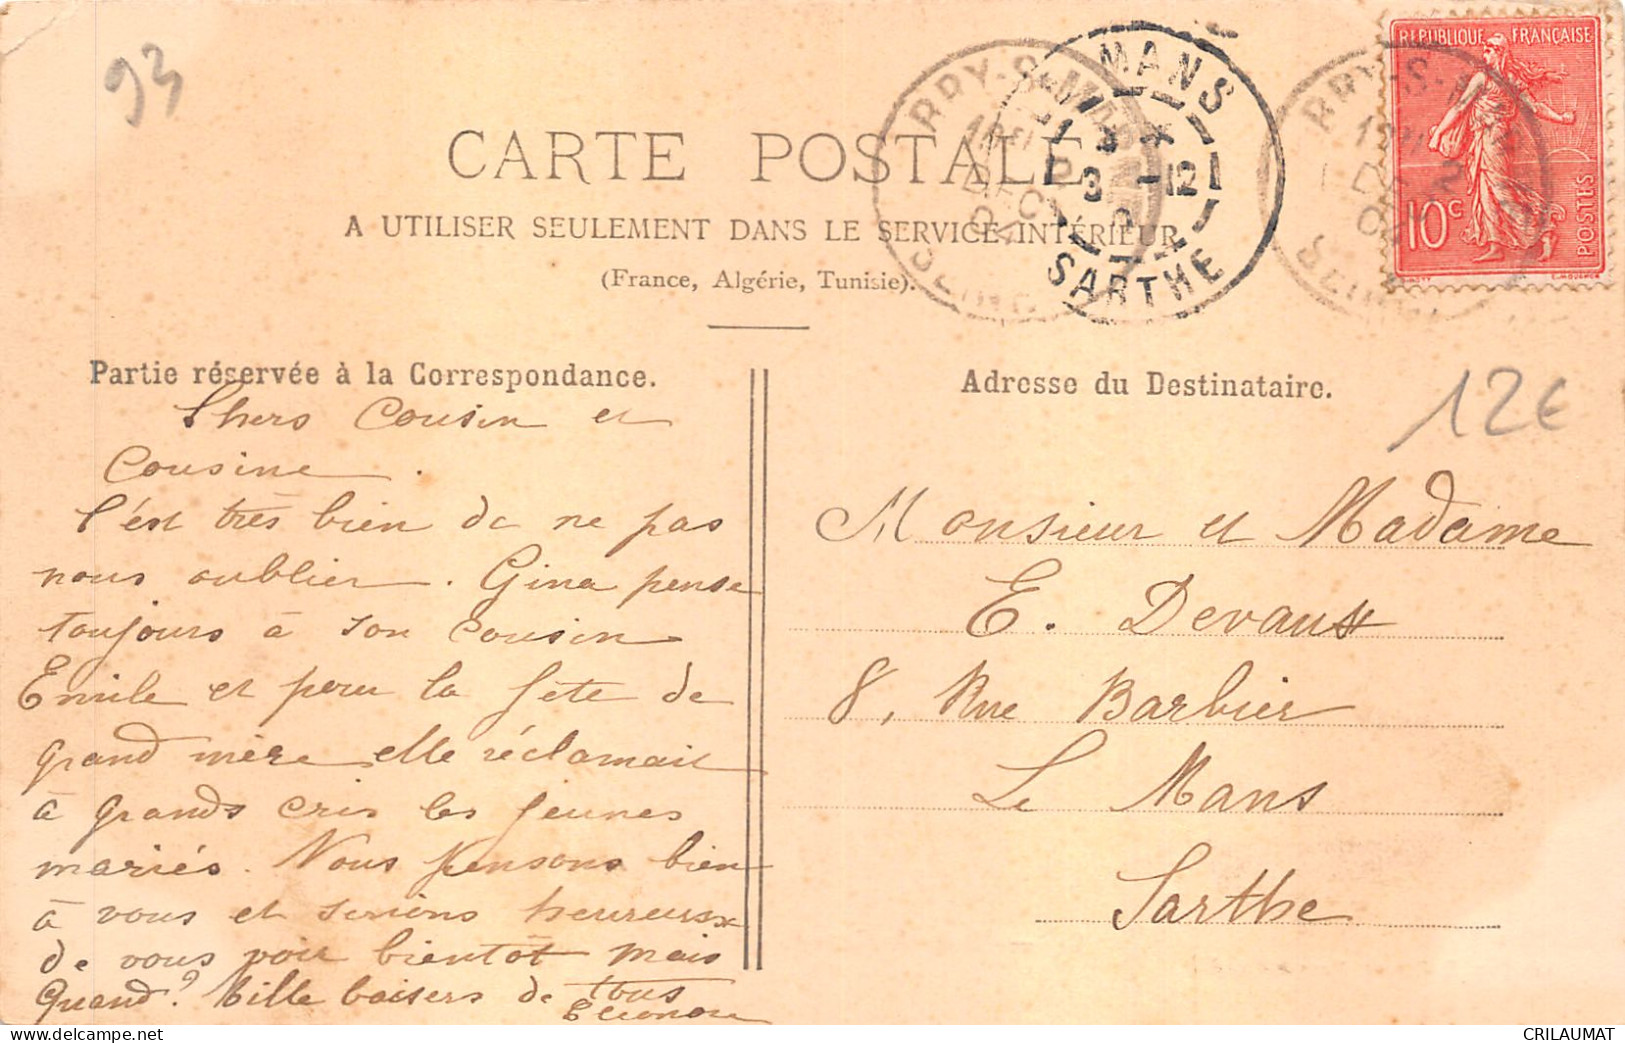 93
CARTE POSTALE
A UTILISER SEULEMENT DANS LE SERVICE INTÉRIEUR
(France, Algérie, Tunisie).
RÉPUBLIQUE FRANÇAISE
10c
POSTES
MANS
3 -12
SARTHE
BRY-S-MARNE
DEC
04
SEINE
Partie réservée à la Correspondance.
Chers Cousin et
Cousine.
C'est très bien de ne pas
nous oublier. Gina pense
toujours à son cousin
Emile et pour la fête de
grand mère elle réclamait
à grands cris les jeunes
mariés. Nous pensons bien
à vous et serions heureux
de vous voir bientôt mais
Quand? Mille baisers de tous
Eléonore
Adresse du Destinataire.
12€
Monsieur et Madame
E. Devaux
8, Rue Barbier
Le Mans
Sarthe
CRILAUMAT